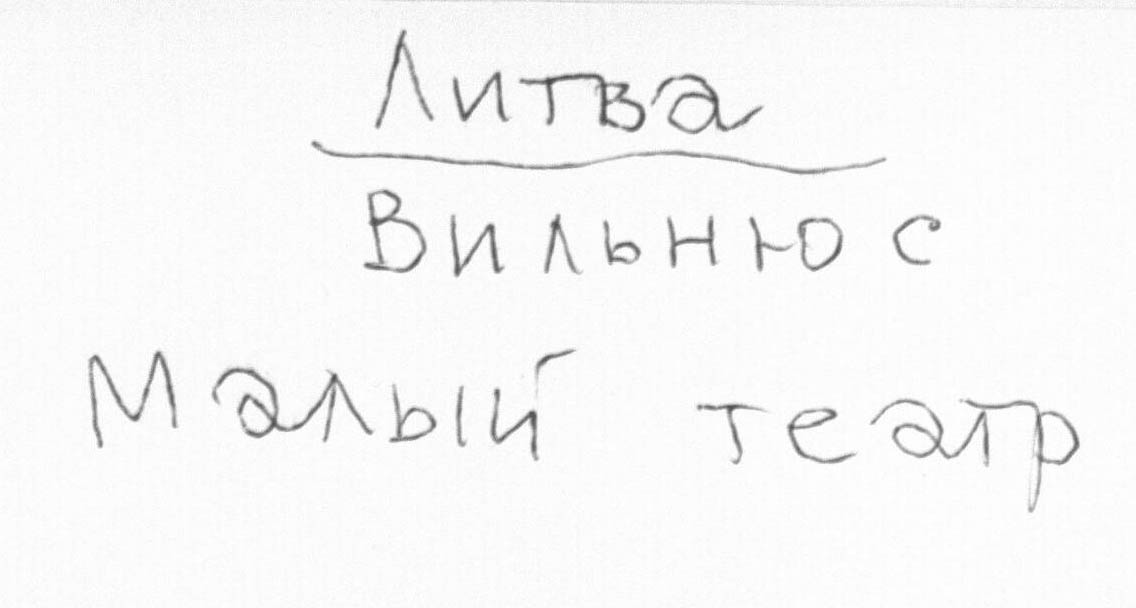 Литва
Вильнюс
Малый театр